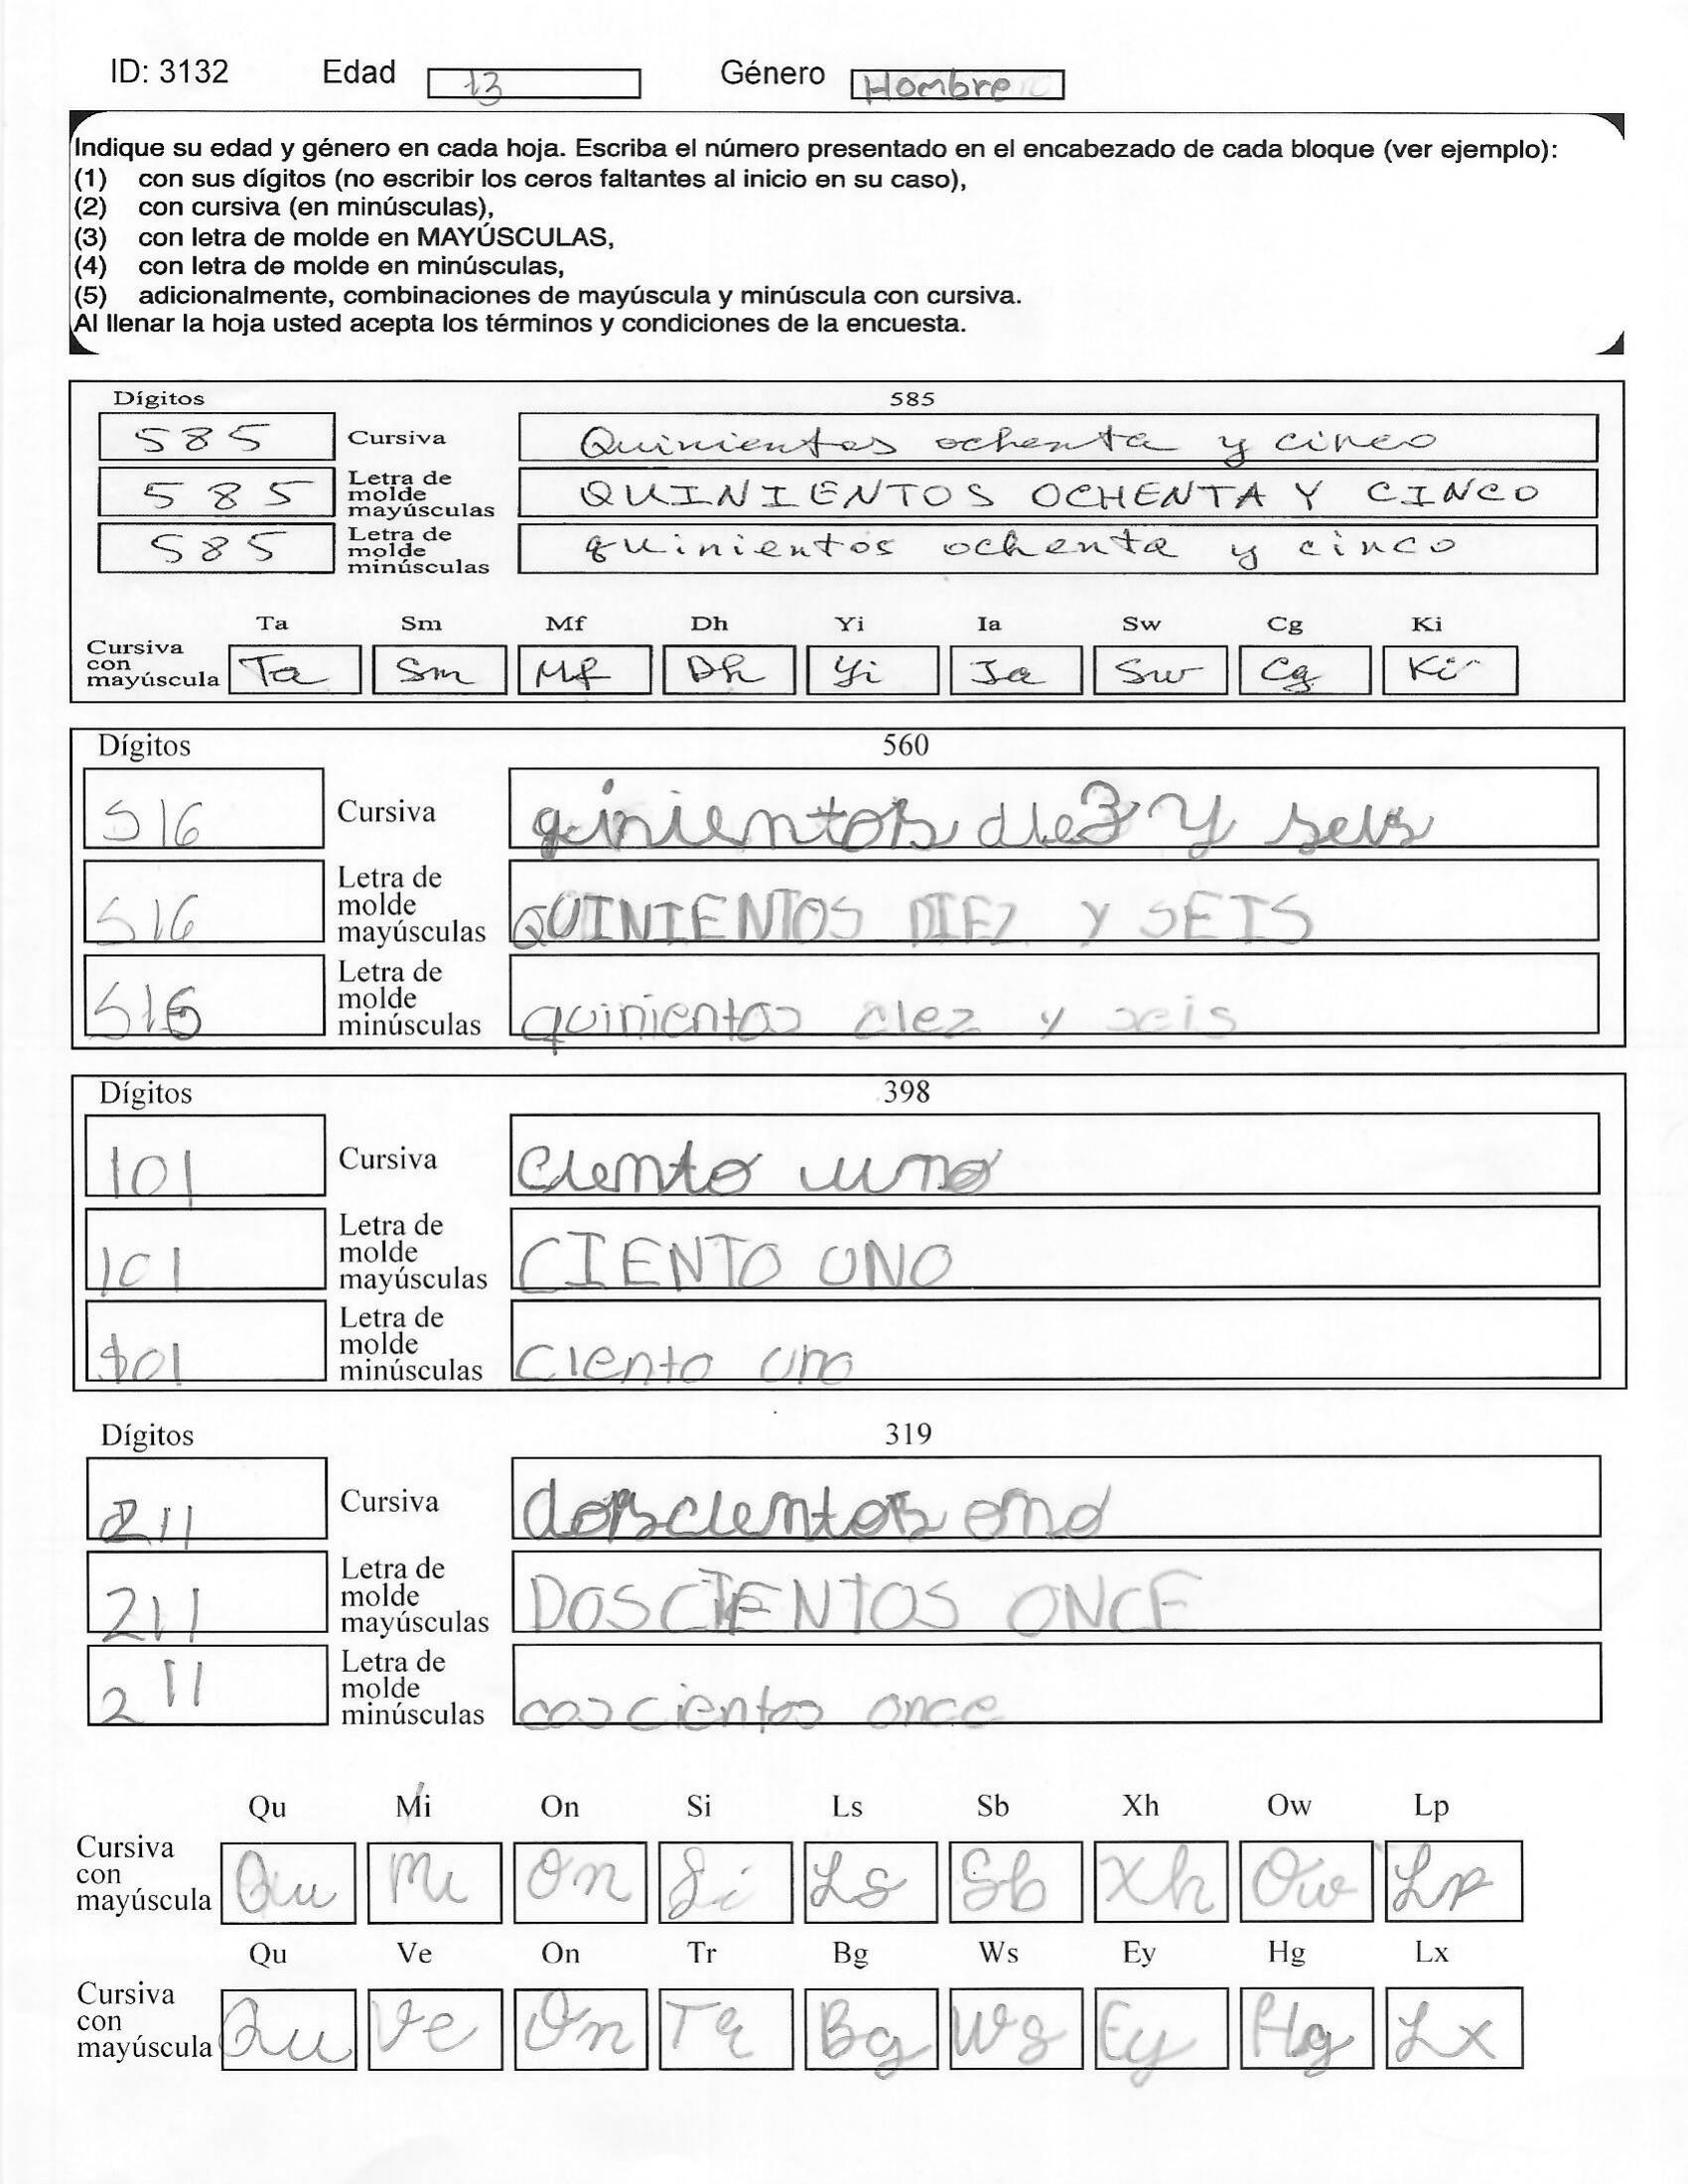 ID: 3132 Edad 13 Género Hombre
Indique su edad y género en cada hoja. Escriba el número presentado en el encabezado de cada bloque (ver ejemplo):
(1) con sus dígitos (no escribir los ceros faltantes al inicio en su caso),
(2) con cursiva (en minúsculas),
(3) con letra de molde en MAYÚSCULAS,
(4) con letra de molde en minúsculas,
(5) adicionalmente, combinaciones de mayúscula y minúscula con cursiva.
Al llenar la hoja usted acepta los términos y condiciones de la encuesta.
Dígitos 585
585 Cursiva Quinientos ochenta y cinco
585 Letra de molde mayúsculas QUINIENTOS OCHENTA Y CINCO
585 Letra de molde minúsculas quinientos ochenta y cinco
Ta Sm Mf Dh Yi Ia Sw Cg Ki
Cursiva con mayúscula Ta Sm Mf Dh Yi Ia Sw Cg Ki
Dígitos 560
516 Cursiva qinientos diez y seis
516 Letra de molde mayúsculas QUINIENTOS DIEZ Y SEIS
516 Letra de molde minúsculas quinientos diez y seis
Dígitos 398
101 Cursiva ciento uno
101 Letra de molde mayúsculas CIENTO UNO
101 Letra de molde minúsculas ciento uno
Dígitos 319
211 Cursiva doscientos
211 Letra de molde mayúsculas DOSCIENTOS ONCE
211 Letra de molde minúsculas doscientos once
Qu Mi On Si Ls Sb Xh Ow Lp
Cursiva con mayúscula Qu Mi On Si Ls Sb Xh Ow Lp
Qu Ve On Tr Bg Ws Ey Hg Lx
Cursiva con mayúscula Qu Ve On Tr Bg Ws Ey Hg Lx